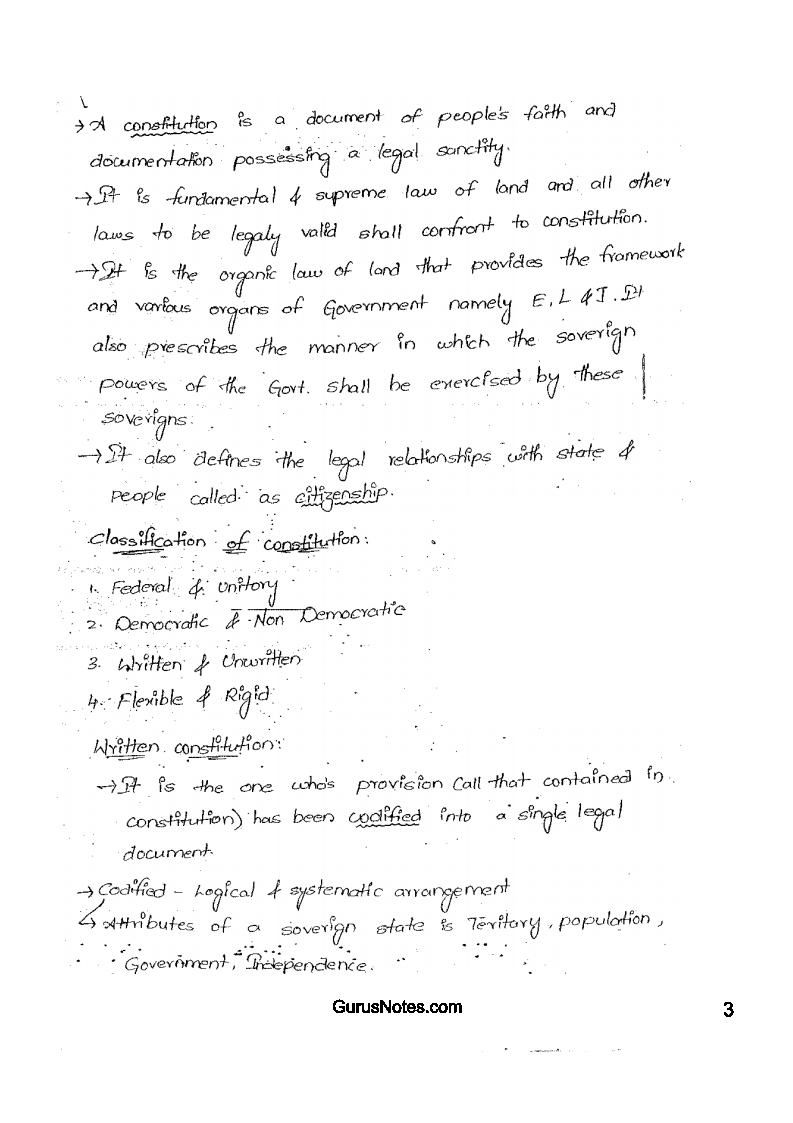 → A constitution is a document of people's faith and
documentation possessing a legal sanctity.
→ It is fundamental & supreme law of land and all other
laws to be legaly valid shall confront to constitution.
→ It is the organic law of land that provides the framework
and various organs of Government namely E, L & J. It
also prescribes the manner in which the soverign
powers of the Govt. shall be exercised by these
soverigns.
→ It also defines the legal relationships with state &
people called as citizenship.
Classification of constitution:
1. Federal & Unitory
2. Democratic & Non Democratic
3. Written & Unwritten
4. Flexible & Rigid
Written constitution:
→ It is the one who's provision (all that contained in
constitution) has been codified into a single legal
document.
→ Codified - Logical & systematic arrangement
↳ Attributes of a soverign state is Teritory, population,
Government, Independence.
GurusNotes.com
3